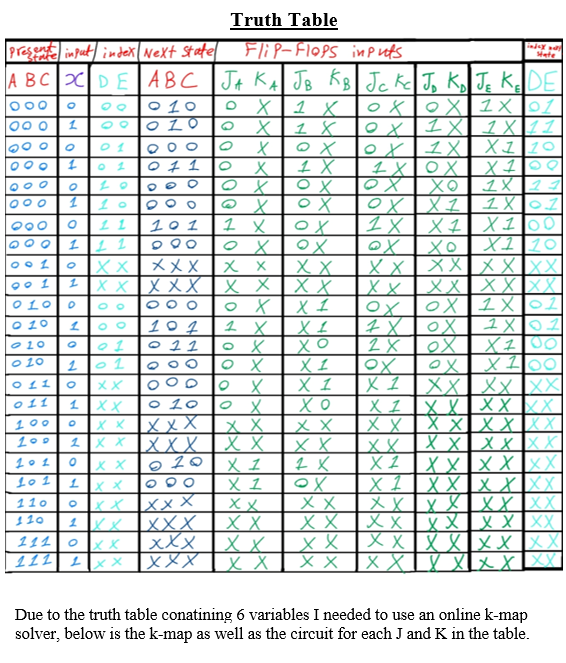 Truth Table
Present state input index Next state Flip-Flops inputs index next state
A B C x D E A B C JA KA JB KB JC KC JD KD JE KE DE
000 0 00 010 0 X 1 X 0 X 0 X 1 X 01
000 1 00 010 0 X 1 X 0 X 1 X 1 X 11
000 0 01 000 0 X 0 X 0 X 1 X X 1 10
000 1 01 011 0 X 1 X 1 X 0 X X 1 00
000 0 10 000 0 X 0 X 0 X X 0 1 X 11
000 1 10 000 0 X 0 X 0 X X 1 1 X 01
000 0 11 101 1 X 0 X 1 X X 1 X 1 00
000 1 11 000 0 X 0 X 0 X X 0 X 1 10
001 0 XX XXX X X X X X X X X X X XX
001 1 XX XXX X X X X X X X X X X XX
010 0 00 000 0 X X 1 0 X 0 X 1 X 01
010 1 00 101 1 X X 1 1 X 0 X 1 X 01
010 0 01 011 0 X X 0 1 X 0 X X 1 00
010 1 01 000 0 X X 1 0 X 0 X X 1 00
011 0 XX 000 0 X X 1 X 1 X X X X XX
011 1 XX 010 0 X X 0 X 1 X X X X XX
100 0 XX XXX X X X X X X X X X X XX
100 1 XX XXX X X X X X X X X X X XX
101 0 XX 010 X 1 1 X X 1 X X X X XX
101 1 XX 000 X 1 0 X X 1 X X X X XX
110 0 XX XXX X X X X X X X X X X XX
110 1 XX XXX X X X X X X X X X X XX
111 0 XX XXX X X X X X X X X X X XX
111 1 XX XXX X X X X X X X X X X XX
Due to the truth table conatining 6 variables I needed to use an online k-map
solver, below is the k-map as well as the circuit for each J and K in the table.